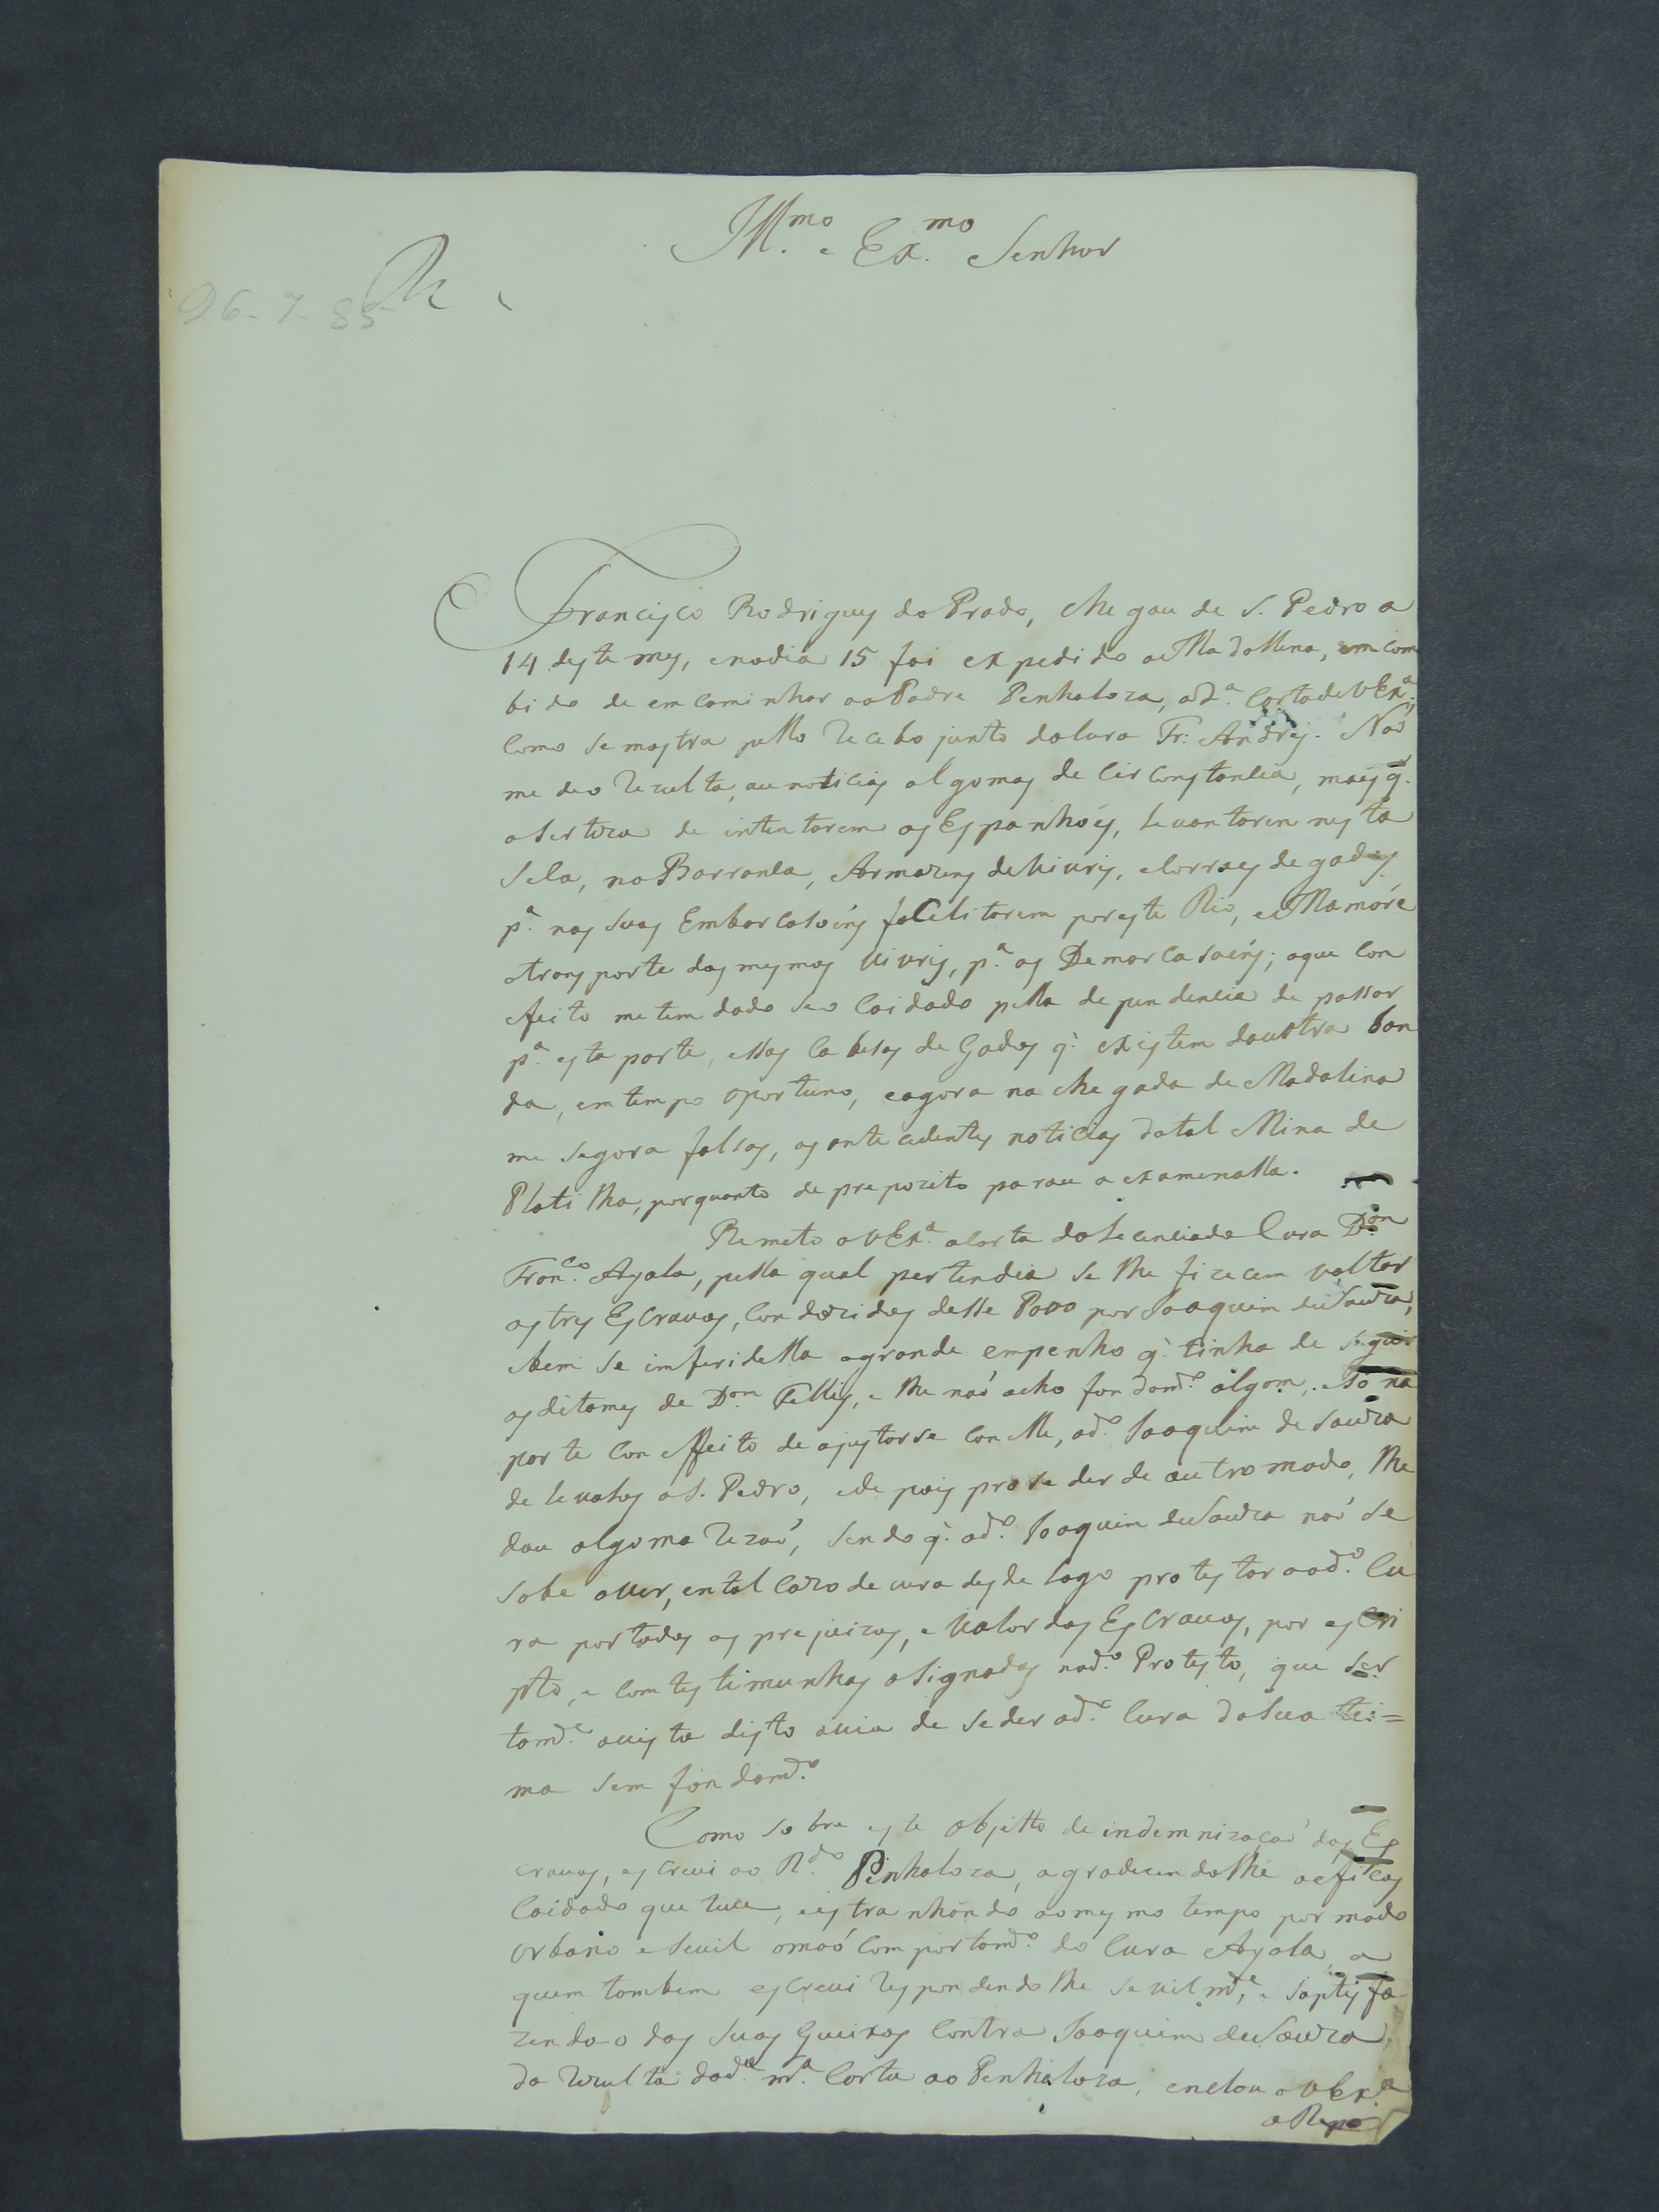 Ill.mo e Ex.mo Senhor
26-7-85
Francisco Rodrigues do Prado, chegou de S. Pedro a
14 deste mes, e no dia 15 foi expedido a Madallena, em com
bido de emcaminhar ao Padre Penhaloza, a d.ª Carta de V Ex.ª;
como se mostra pello recebo junto do Cura Fr: Andres. Não
me deo rezulta, ou noticias algomas de circonstancia, mais q.
a sertoza de intentarem os Espanhóes, levantarem nesta
Sela, na Barranca, Armazens de viuris, e Corraes de gados
p.ª nas suas Embarcasoins faCelitarem por este Rio, e Mamóre
o transporte dos mesmos viuris, p.ª as Demarcasoéns; o que con
efeito me tem dado seo Coidado pella dependencia de passar
p.ª esta parte, essas Cabesas de Gados q. existem da outra ban
da, em tempo oportuno, e agora na chegada de Madalina
me segora falsas, as antecedentes noticias da tal Mina de
Platilha, porquanto de prepozito parou a examenalla.
Remeto a V Ex.ª a Carta do Lecenciado Cura D.on
Fran.co Ayala, pella qual pertendia se lhe fizecem voltar
os tres Escravos, Condozidos desse Povo por Joaquim de Souza,
e bem se imferi della o grande empenho q. tinha de seguir
os ditames de D.on Fellis, e lhe naó acho fondam.to algom, e só na
parte con effeito de ajustarse con elle, o d.o Joaquim de Souza
de levalos a S. Pedro, e depois proseder de outro modo, lhe
dou algoma rezaó, sendo q. o d.o Joaquim de Souza naó se
sobe aver, en tal Cazo devera desde logo protestar ao d.o Cu
ra por todos os prejuizos, e valor dos Escravos, por escri
pto, e com testimunhas asignados no d.o Protesto, que ser
tam.e avista disto avia de seder o d.o Cura da sua tei=
ma sem fondam.to
Como sobre este objetto de indemnizacaó dos Es
cravos, escrevi ao R.do Penhaloza, agradecendolhe o efficas
Coidado que teve, e estranhando ao mesmo tempo por modo
Urbano e sevil o maó Comportam.to do Cura Ayala, a
quem tambem escrevi respondendolhe sevilm.te, e saptisfa
zendo-o das suas Queixas Contra Joaquim de Souza,
da rezulta da d.ª m.ª Carta ao Penhaloza, encluo a V Ex.ª
a Repo